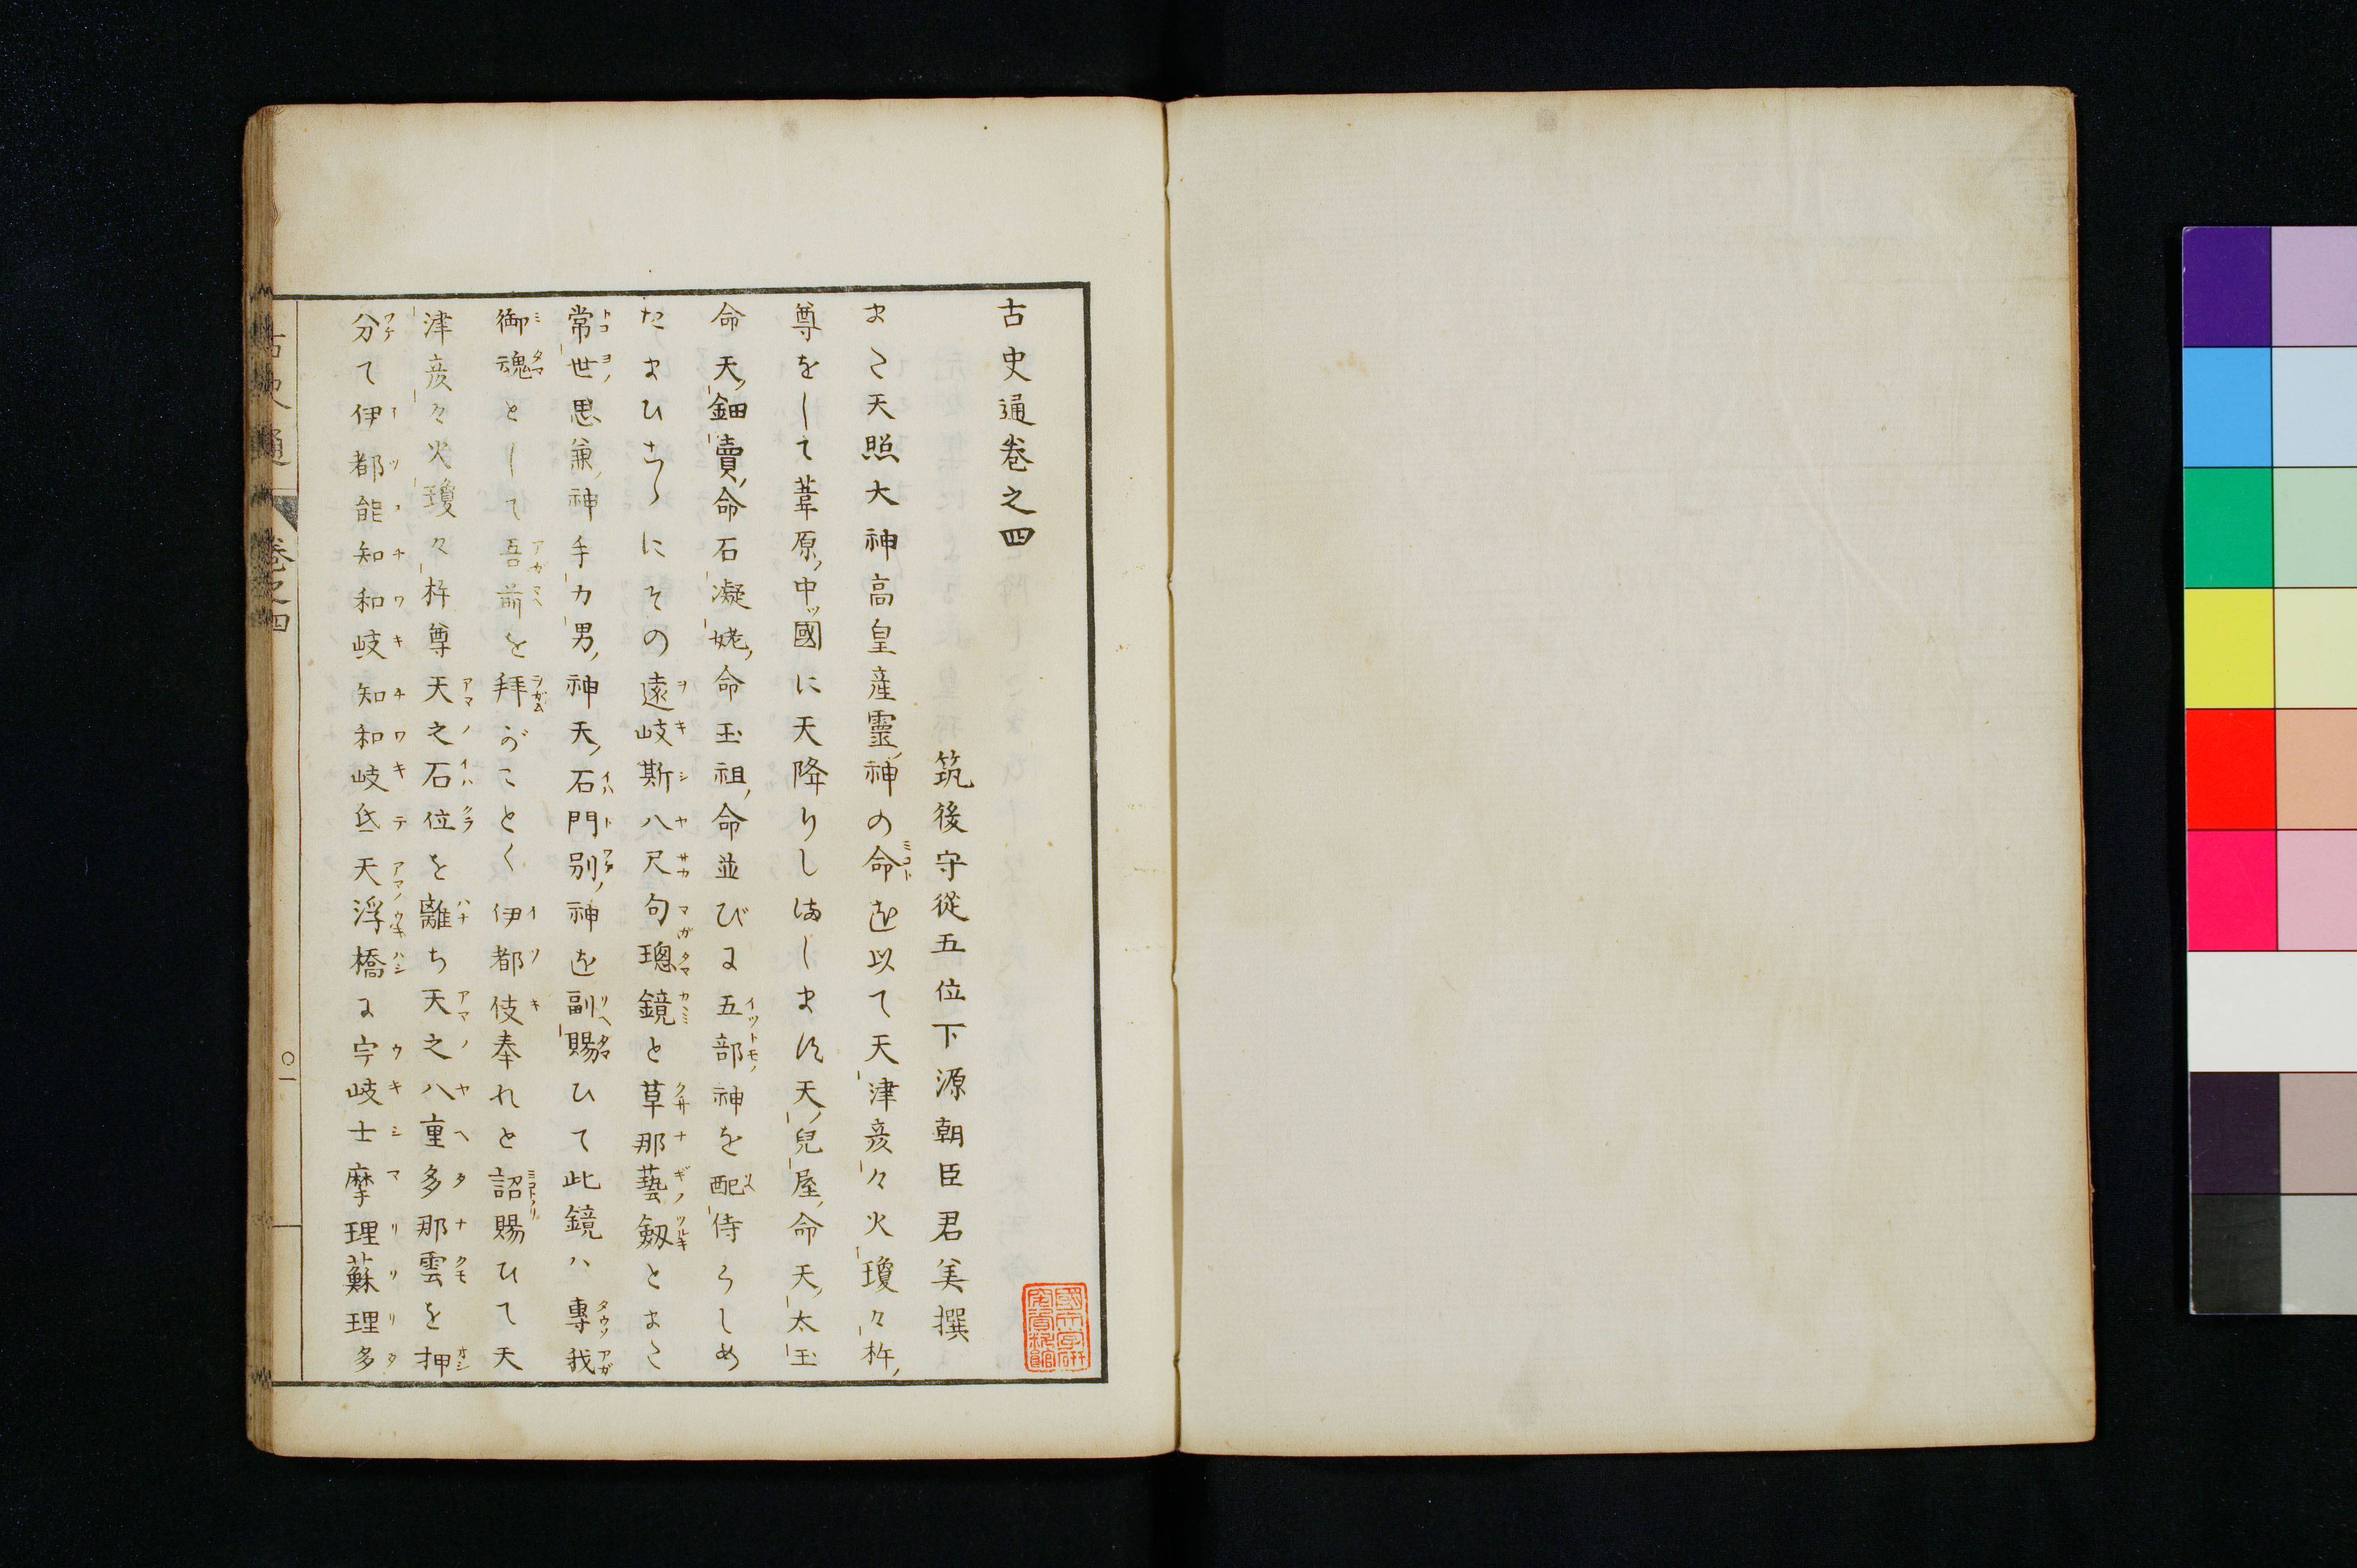 古史通巻之四
筑後守從五位下源朝臣君美撰
まさ天照大神高皇産靈神の命を以て天津彦々火瓊々杵
尊をして葦原中ツ國に天降りしほします天兒屋命天太玉
命天鈿賣命石凝姥命玉祖命並びに五部神を配侍らしめ
たまひさらにその遠岐斯八尺句璁鏡と草那藝劔とまさ
常世思兼神手力男神天石門別神を副賜ひて此鏡ハ專我
御魂として吾前を拜がことく伊都伎奉れと詔賜ひて天
津彦々火瓊々杵尊天之石位を離ち天之八重多那雲を押
分て伊都能知和岐知和岐氐天浮橋に宇岐士摩理蘇理多
古史通
巻之四
〇一
國文學研究資料館